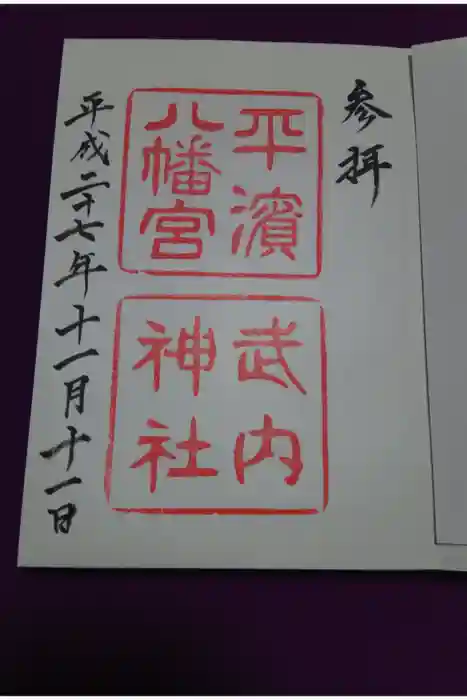 参拝
平濱
八幡宮
武内
神社
平成二十七年十一月十一日